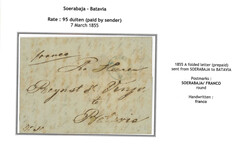 Soerabaja - Batavia
Rate : 95 duiten (paid by sender)
7 March 1855
franco
De Heeren
1855 A folded letter (prepaid)
sent from SOERABAJA to BATAVIA
Postmarks :
SOERABAJA/ FRANCO
round
Handwritten :
franco